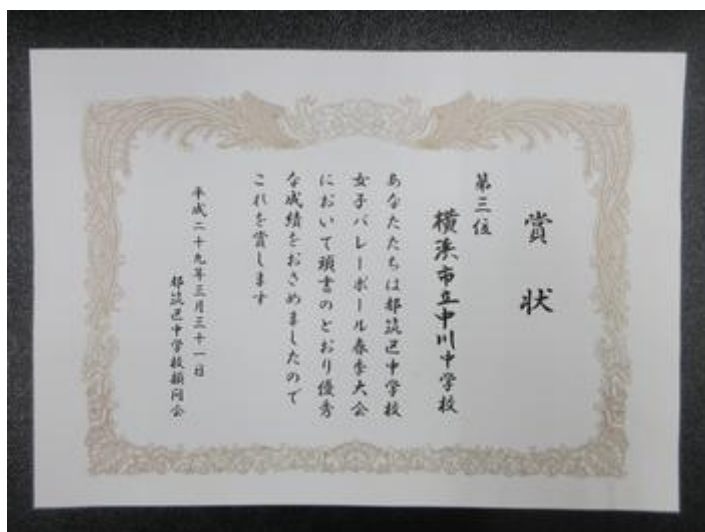 賞状
第三位
横浜市立中川中学校
あなたたちは都筑区中学校
女子バレーボール春季大会
において頭書のとおり優秀
な成績をおさめましたので
これを賞します
平成二十九年三月三十一日
都筑区中学校顧問会